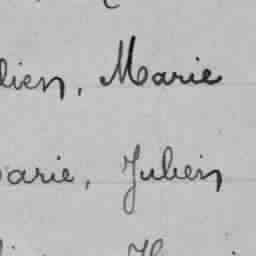 lien, Marie
arie, Julien